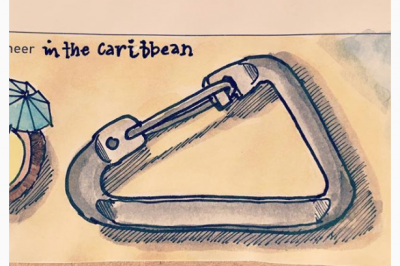 neer in the Caribbean